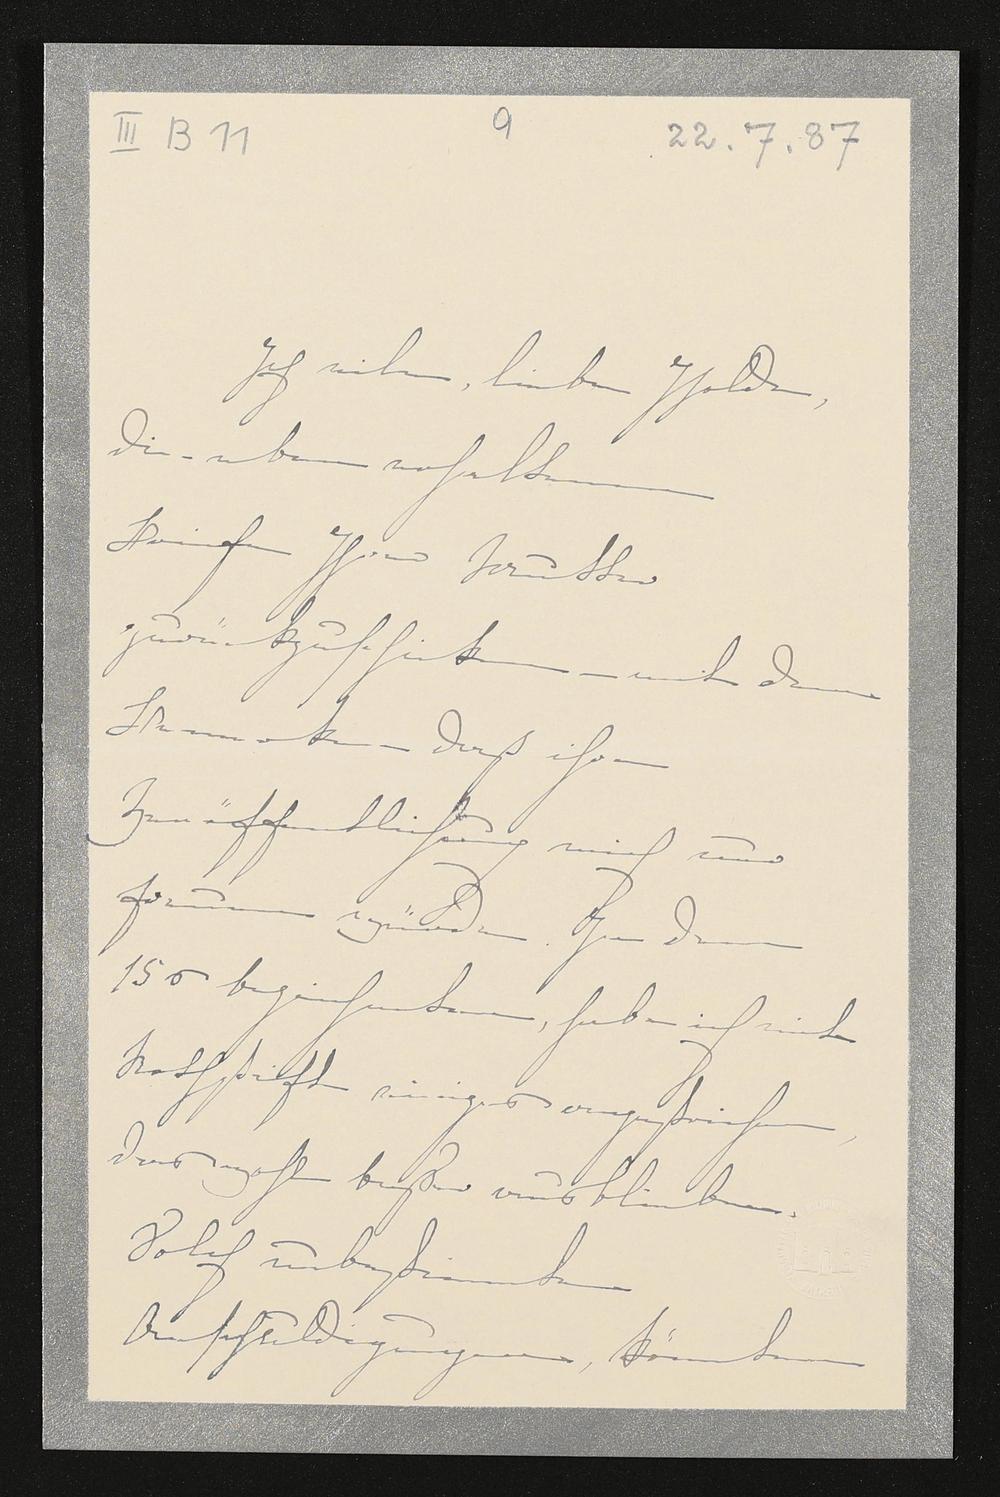 III B 11
9
22.7.87
Ich eile, liebe Isolde,
die eben erhaltenen
Briefe Ihres Bruders
zurückzuschicken – mit dem
Bemerken – daß ihre
Veröffentlichung mich nur
freuen würde. In dem
15 bezeichneten, habe ich mit
Rothstift einiges angestrichen,
das wohl besser ausbliebe.
Solch unbestimmte
Anschuldigungen, könnten